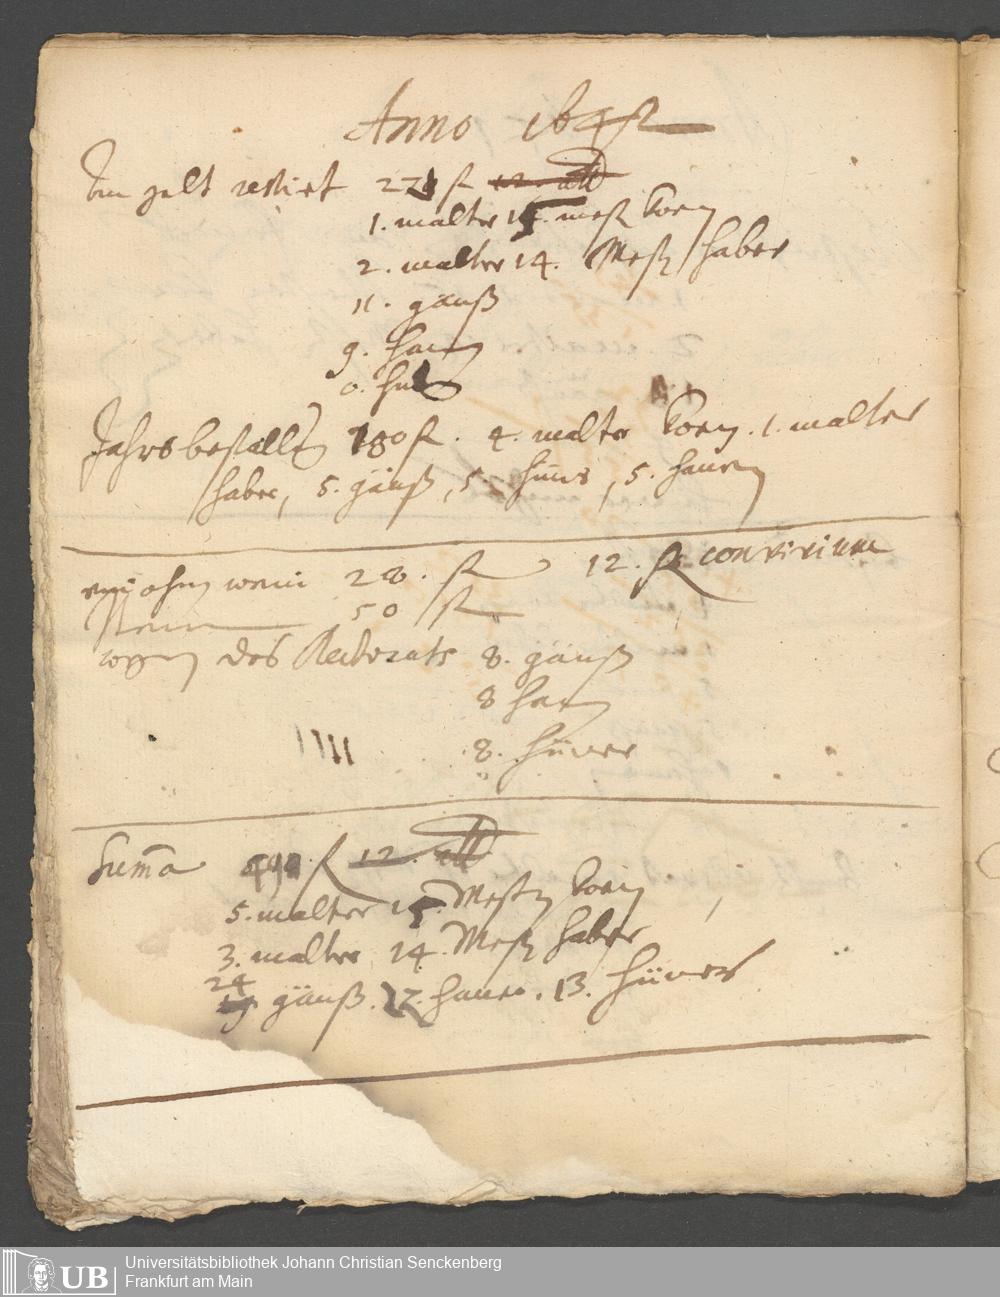 Anno 164
An gelt restirt 22 fl
1. malter 15. meß Korn
2. malter 14. Meß haber
11. gänß
9. hanen
0. hu
Jahrs bestallung 180 fl. 4. malter Korn. 1. malter
haber, 5. gänß, 5. hüner, 5. hanen
ohm wein 28. fl 12. fl convivium
50 fl
wegen des Rectorats 8. gänß
8 hanen
8. hüner
Summa 490 fl 12. alb
5. malter 15. Mestn Korn
3. malter 14. Meß haber
24
gänß. 17. hanen. 13. hüner
UB
Universitätsbibliothek Johann Christian Senckenberg
Frankfurt am Main